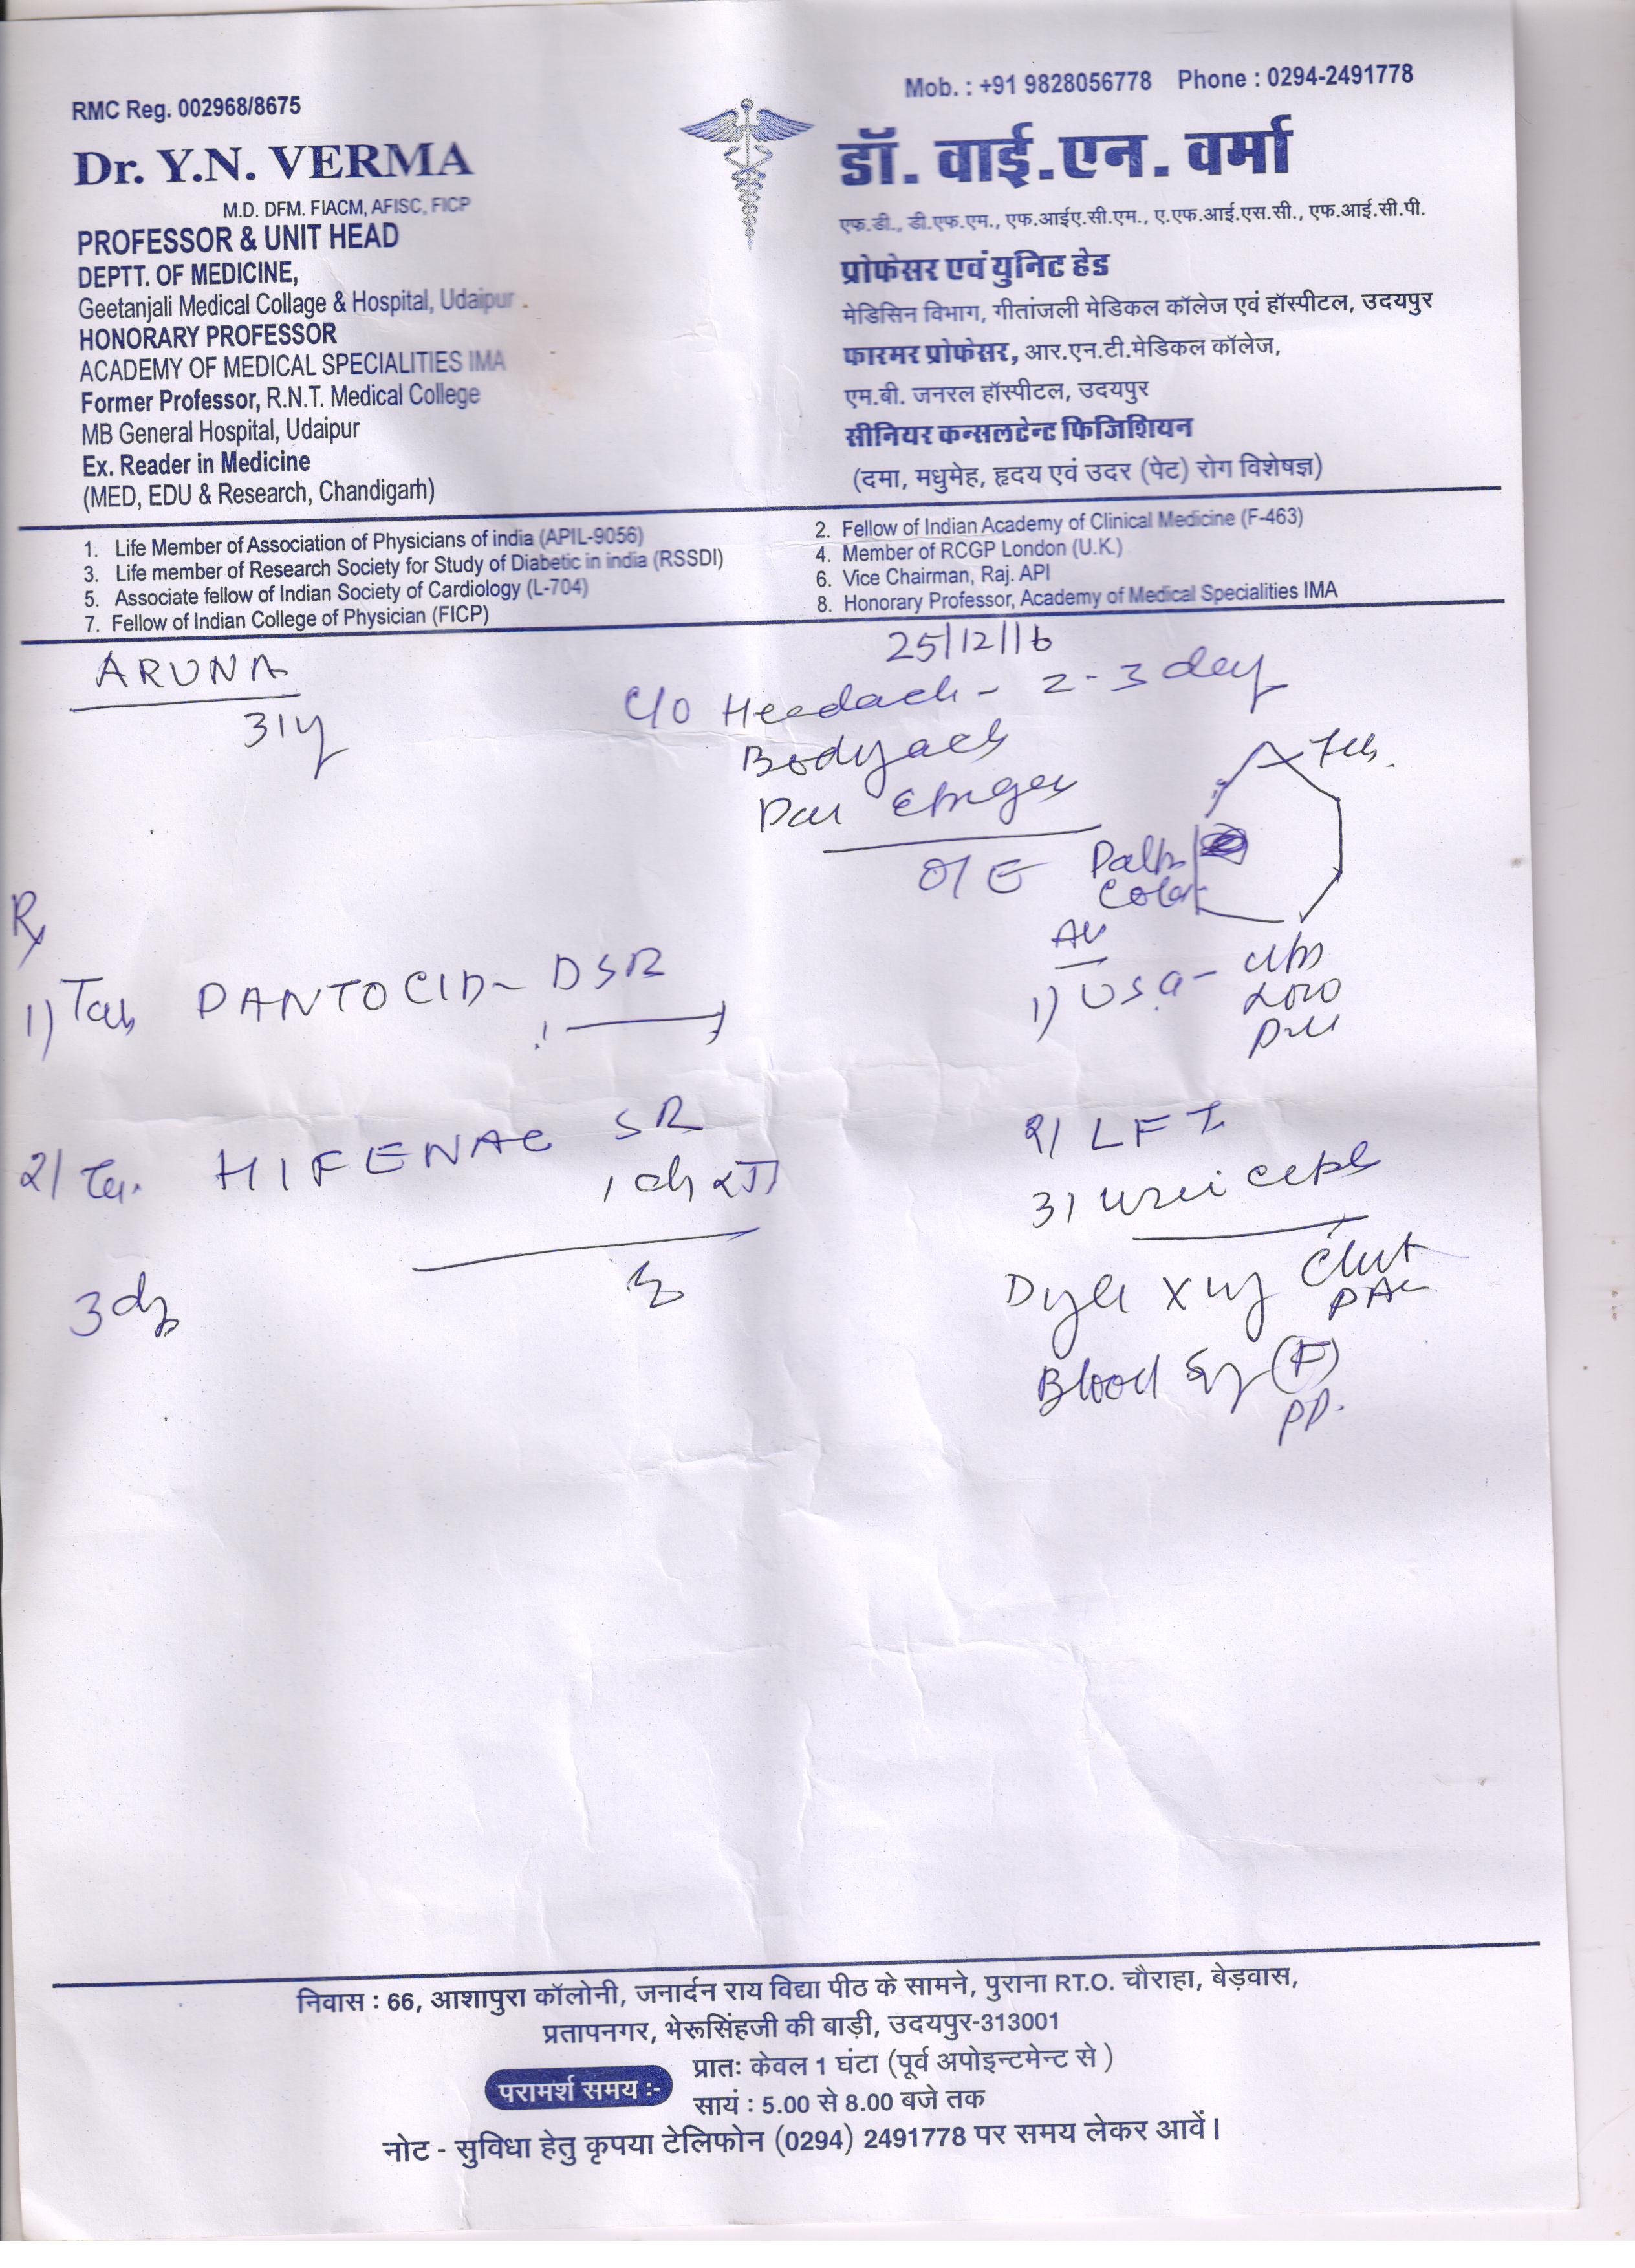 RMC Reg. 002968/8675
Mob. : +91 9828056778 Phone : 0294-2491778
Dr. Y.N. VERMA
M.D. DFM. FIACM, AFISC, FICP
PROFESSOR & UNIT HEAD
DEPTT. OF MEDICINE,
Geetanjali Medical Collage & Hospital, Udaipur .
HONORARY PROFESSOR
ACADEMY OF MEDICAL SPECIALITIES IMA
Former Professor, R.N.T. Medical College
MB General Hospital, Udaipur
Ex. Reader in Medicine
(MED, EDU & Research, Chandigarh)
डॉ. वाई.एन. वर्मा
एफ.डी., डी.एफ.एम., एफ.आईए.सी.एम., ए.एफ.आई.एस.सी., एफ.आई.सी.पी.
प्रोफेसर एवं युनिट हेड
मेडिसिन विभाग, गीतांजली मेडिकल कॉलेज एवं हॉस्पीटल, उदयपुर
फारमर प्रोफेसर, आर.एन.टी.मेडिकल कॉलेज,
एम.बी. जनरल हॉस्पीटल, उदयपुर
सीनियर कन्सलटेन्ट फिजिशियन
(दमा, मधुमेह, हृदय एवं उदर (पेट) रोग विशेषज्ञ)
1. Life Member of Association of Physicians of india (APIL-9056)
2. Fellow of Indian Academy of Clinical Medicine (F-463)
3. Life member of Research Society for Study of Diabetic in india (RSSDI)
4. Member of RCGP London (U.K.)
5. Associate fellow of Indian Society of Cardiology (L-704)
6. Vice Chairman, Raj. API
7. Fellow of Indian College of Physician (FICP)
8. Honorary Professor, Academy of Medical Specialities IMA
25/12/16
ARUNA
31y
C/O Headach - 2-3 day
Bodyach
O/E
Rx
1) Tab PANTOCID - DSR
2) HIFENAC SR
3
1) USG -
2) LFT
3)
Blood (F)
PP.
निवास : 66, आशापुरा कॉलोनी, जनार्दन राय विद्या पीठ के सामने, पुराना RT.O. चौराहा, बेड़वास,
प्रतापनगर, भेरूसिंहजी की बाड़ी, उदयपुर-313001
परामर्श समय :-
प्रातः केवल 1 घंटा (पूर्व अपोइन्टमेन्ट से )
सायं : 5.00 से 8.00 बजे तक
नोट - सुविधा हेतु कृपया टेलिफोन (0294) 2491778 पर समय लेकर आवें।